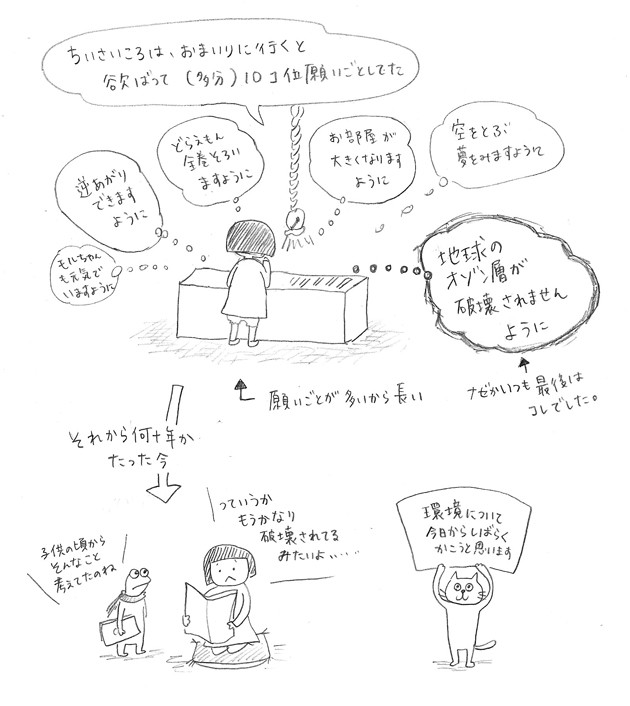 ちいさいころは、おまいりに行くと
欲ばって(多分)10コ位願いごとしてた
逆あがり
できます
ように
どらえもん
全巻そろい
ますように
お部屋が
大きくなります
ように
空をとぶ
夢をみますように
モルちゃん
も元気で
いますように
地球の
オゾン層が
破壊されません
ように
願いごとが多いから長い
ナゼかいつも最後は
コレでした。
それから何十年か
たった今
子供の頃から
そんなこと
考えてたのね
っていうか
もうかなり
破壊されてる
みたいよ……
環境について
今日からしばらく
かこうと思います